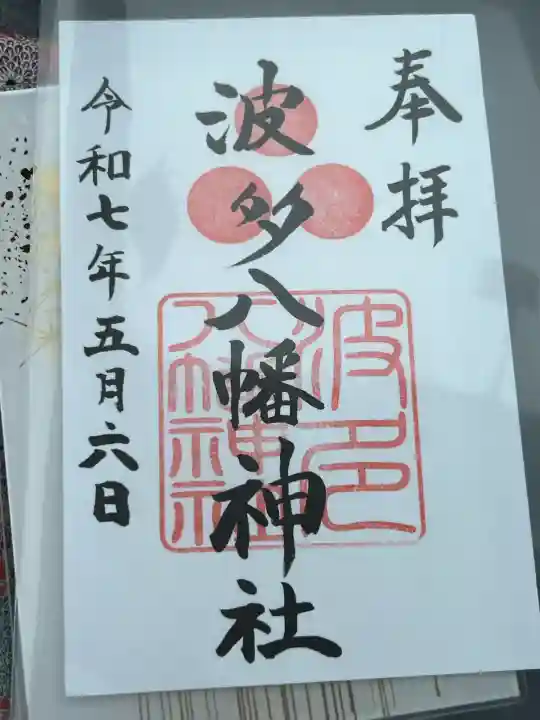 奉拝
波多八幡神社
波多
八幡神社
令和七年五月六日